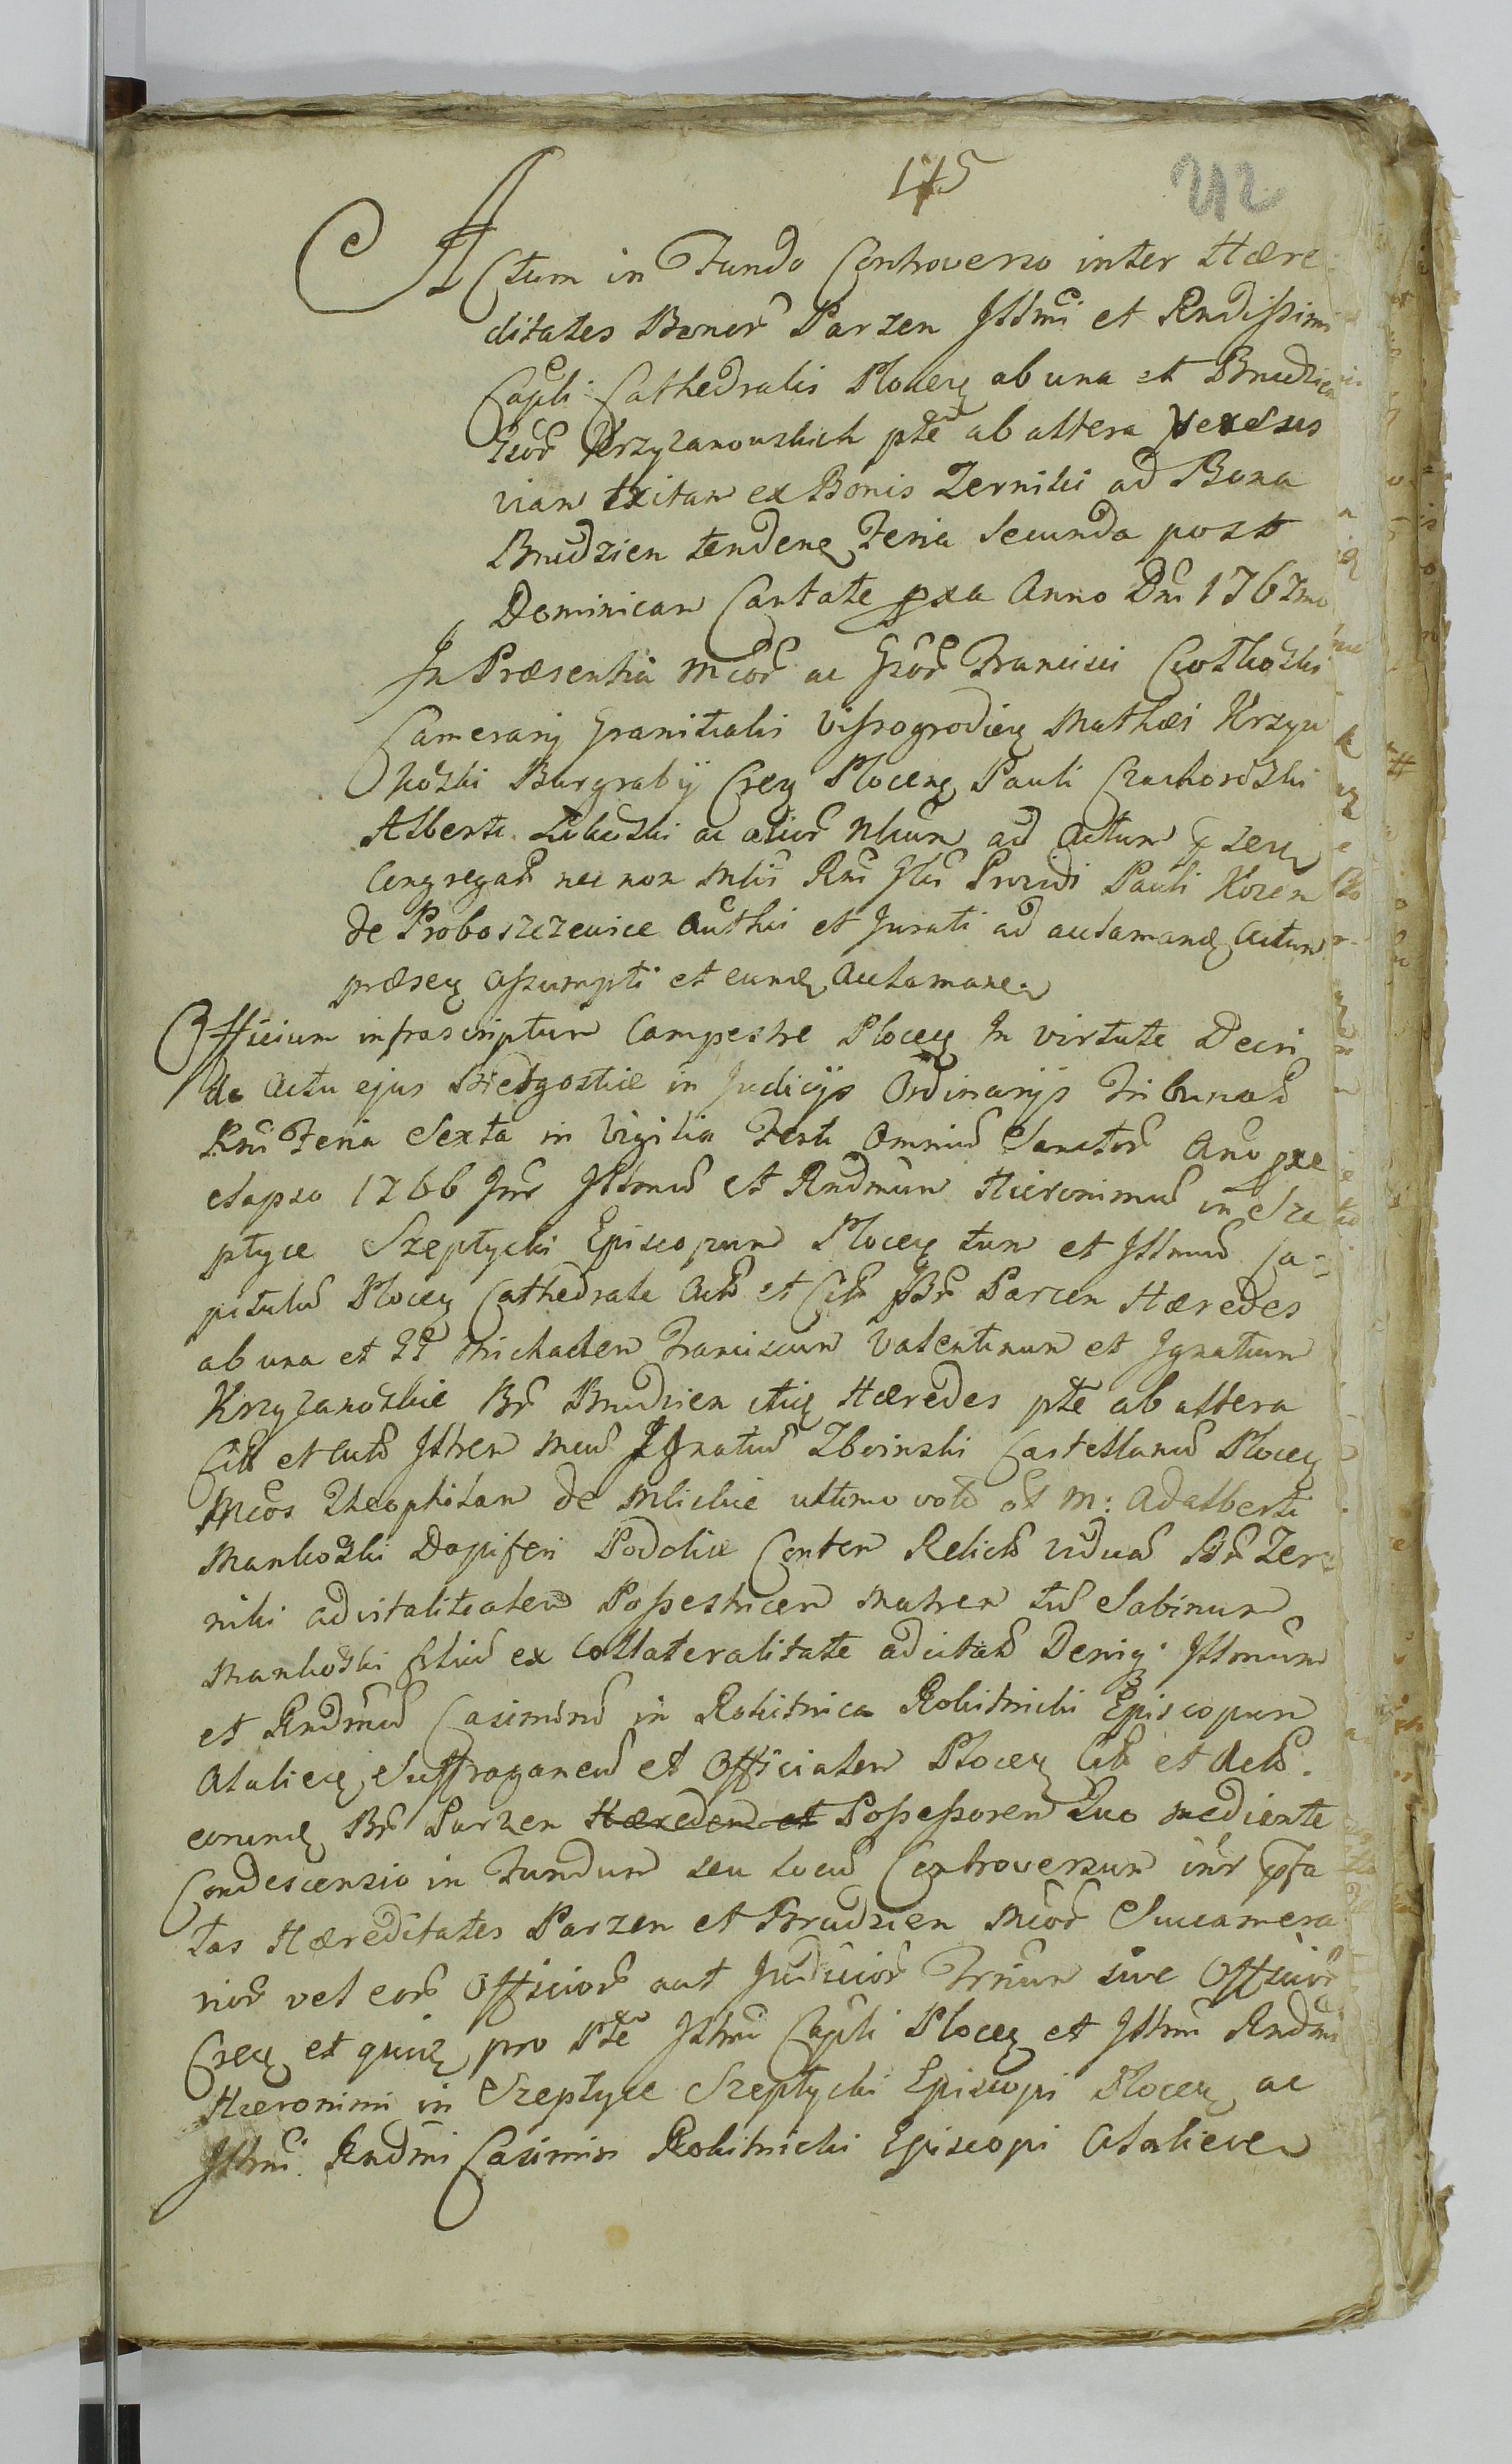 175
212
Actum in Fundo Controverso inter Hære
ditates Bonor Parzen Illmi et Rndissimi
Capli Cathedralis Plocen ab una et Brudzien
Gsor Krzyzanowskich pte ab altera versus
viam tritam ex Bonis Zerniki ad Bona
Brudzien tenden Feria Secunda post
Dominicam Cantate pxa Anno Dni 1767mo
In Præsentia Mcor ac Gsor Francisci
Camerarij Granitialis Vissogrodien Mathæi Krzyn
koski Burgrabij Cren Plocen Pauli Czachoroski
Alberti ac alior Nlium ad Actum
Congregat nec non Mlis Rni Glis Providi Pauli Kozen
de Proboszczewice Authci et Jurati ad acclamand Actum
præsen assumpti et eund acclamanen
Officium infrascriptum Campestre Plocen In virtute Decri
de Actu ejus in Judicijs Ordinarijs Tribunal
Rni Feria Sexta in Vigilia Festi Omniu Sanctor Ano pxe
elapso 1766 Inr Illmu et Rndmum Hieronimu in Sze
ptyce Szeptycki Episcopum Plocen tum et Illmu Ca-
pitulu Plocen Cathedrale Act et Cit Br Parcen Hæredes
ab una et GG Michaelem Franciscum Valentinum et Ignatium
Krzyzanoskie Br Brudzien Hæredes pte ab altera
Cit et Illrem Mcu Ignatiu Zboinski Castellanu Plocen
Mcos Theophilam de Mlickie ultimo voto ol M: Adalberti
Mankoski Dapiferi Podoliæ Conten Relict Vidua Br Zer
niki advitalitatem Possestricem Matrem tu Sabinum
Mankoski filiu ex Collateralitate adcitat Deniq Illmum
et Rndmu Casimiru in Rokitnica Rokitnicki Episcopum
Atalien Suffraganeu et Officialem Plocen Cit et Act.
eorund Br Parzen Hæredem et Possessorem Quo mediante
Condescensio in Fundum seu locu Controversum intr
tas Hæreditates Parzen et Brudzien Mcor Succamera
rior vel eor Officior aut Judicior Trrium sive Officior
Cren et pro Pte Illmi Capli Plocen et Illmi Rndmi
Hieronimi in Szeptyce Szeptycki Episcopi Plocen ac
Illmi Rndmi Casimiri Rokitnicki Episcopi Atalicen